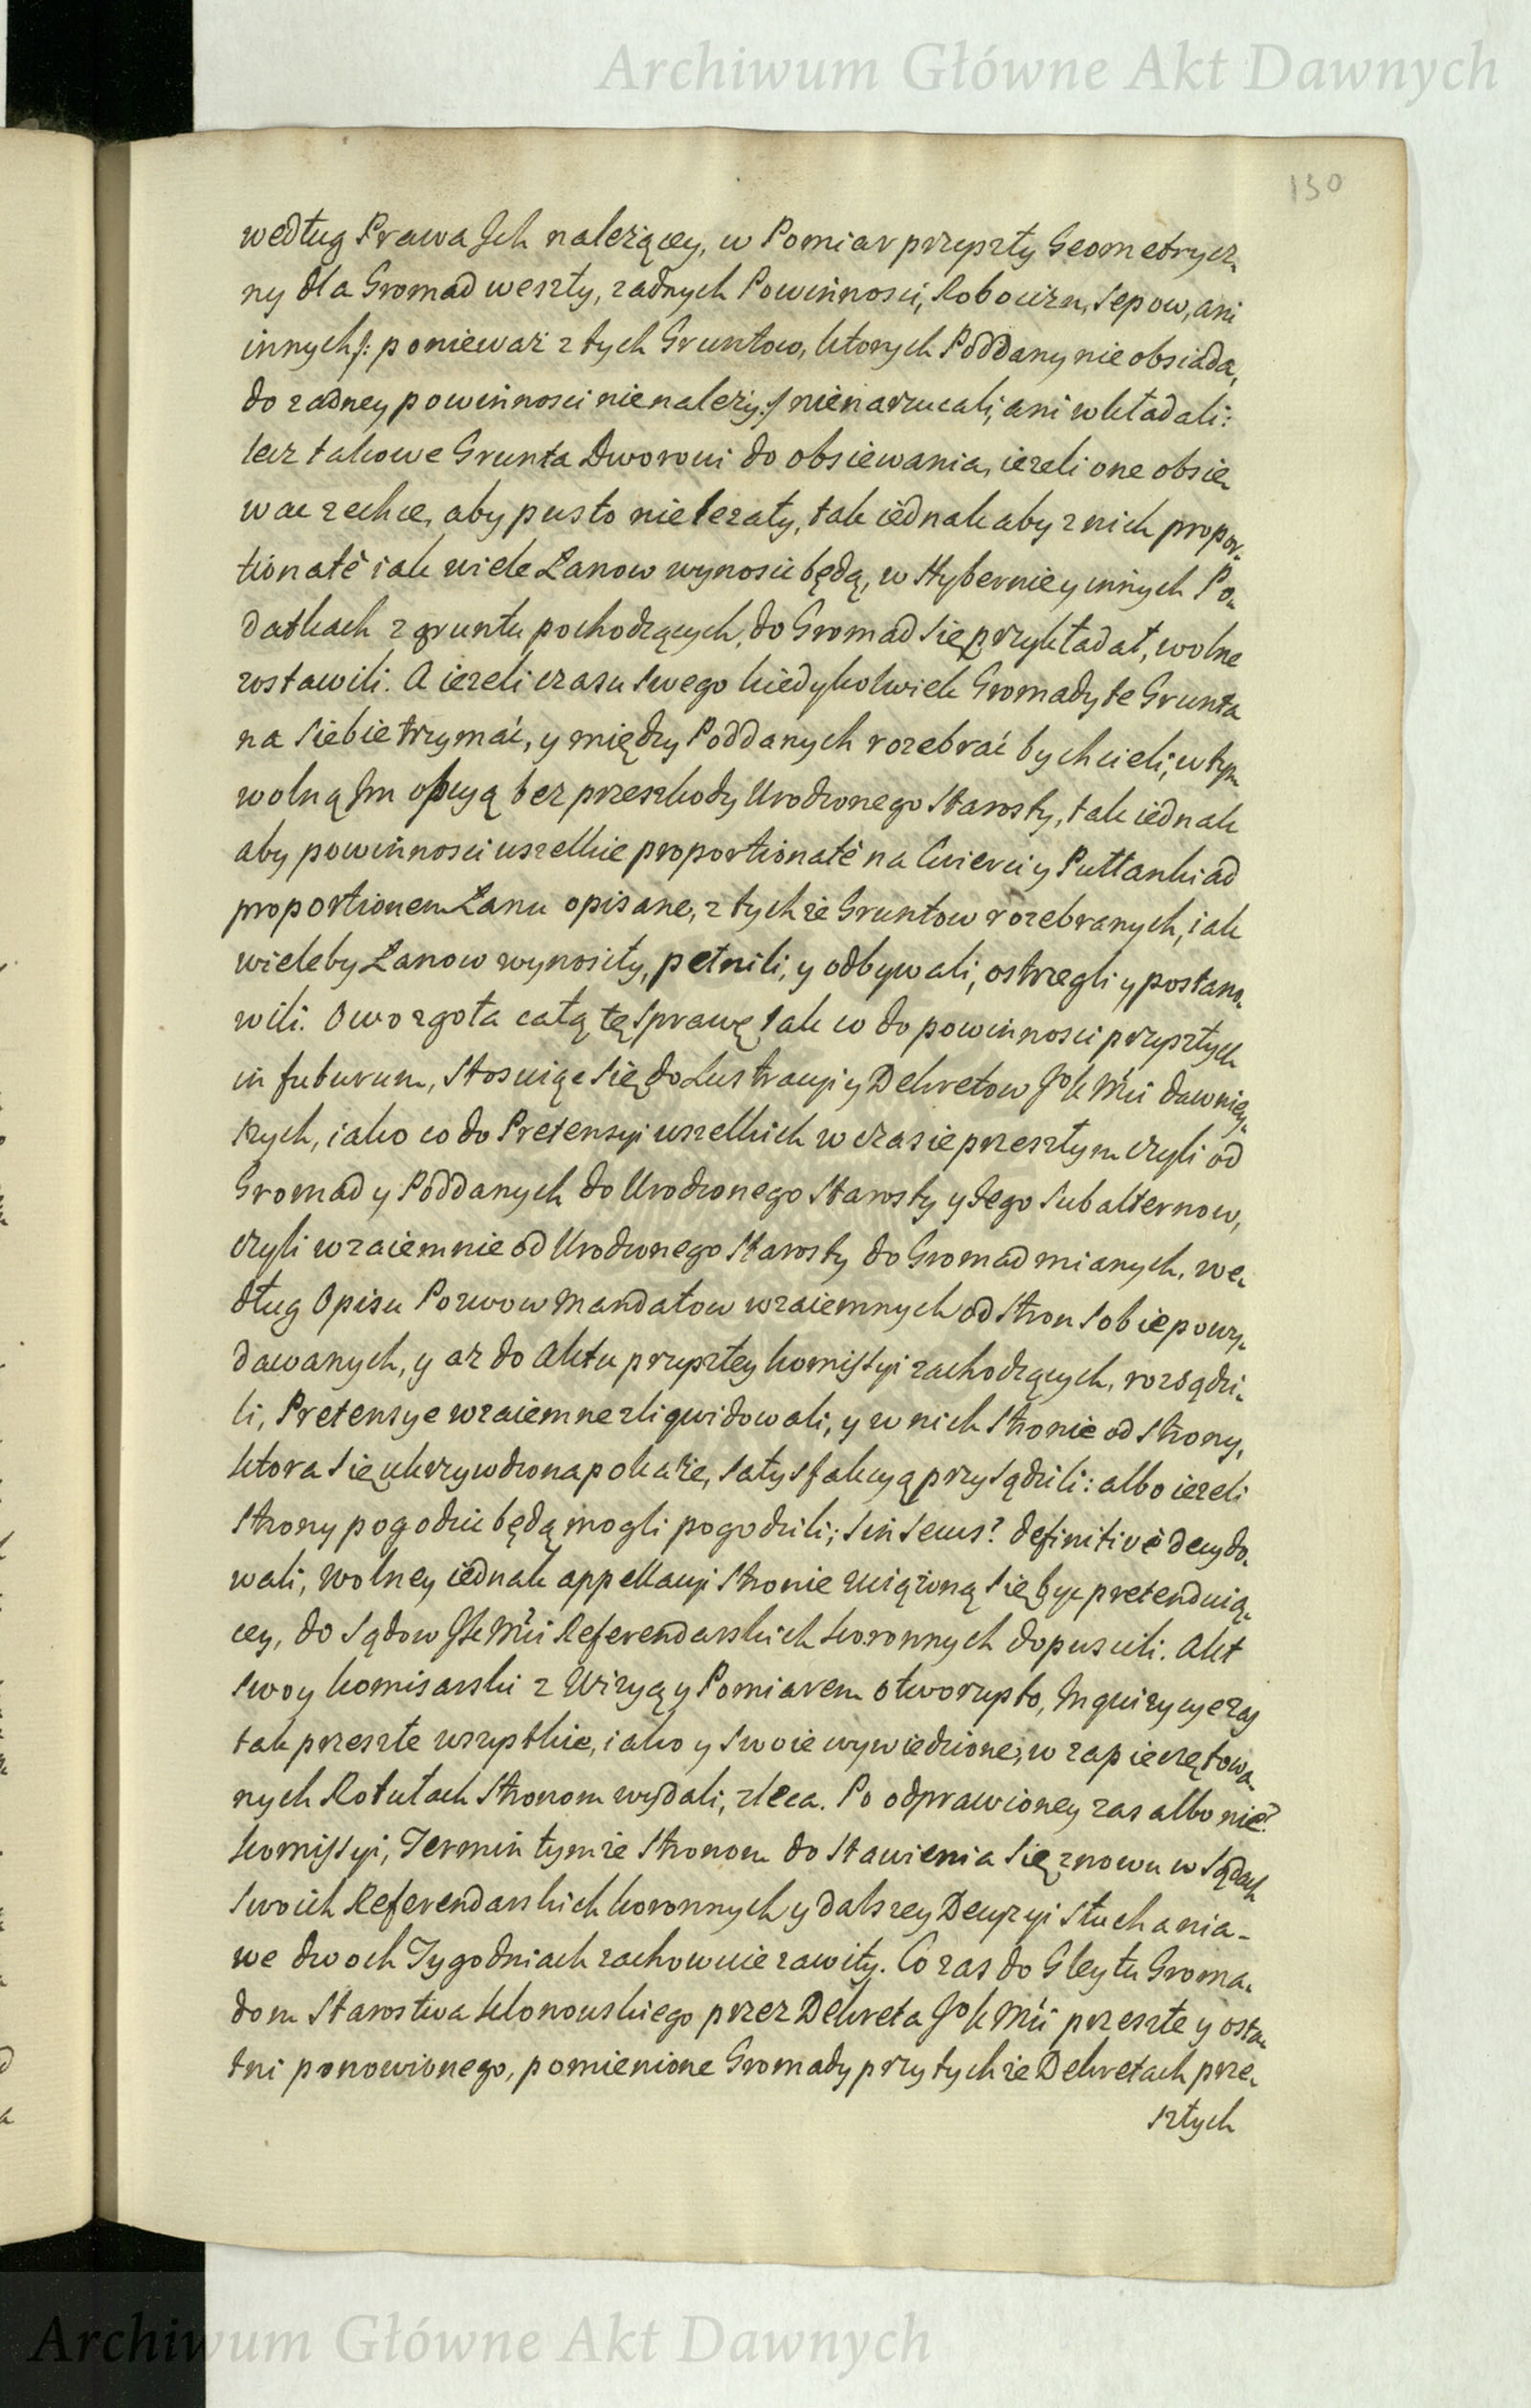 Archiwum Główne Akt Dawnych
130
według Prawa Ich należącey, w Pomiar przyszły Geometrycz-
ny dla Gromad weszły, zadnych Powinnosci, Robocizn, Sepow, ani
innych /: poniewaz z tych Gruntow, ktorych Poddany nie obsiada,
do zadney powinnosci nie nalezy :/ nienarzucali, ani wkładali:
lecz takowe Grunta Dworowi do obsiewania, iezeli one obsie-
wac zechce, aby pusto nie lezały, tak iednak aby z nich propor-
tionatè iak wiele Łanow wynosic będą, w Hybernie y innych Po-
datkach z gruntu pochodzących, do Gromad się przykładał, wolne
zostawili. A iezeli czasu swego kiedykolwiek Gromady te Grunta
na siebie trzymać, y między Poddanych rozebrać by chcieli, w tym
wolną Im opcyą bez przeszkody Urodzonego Starosty, tak iednak
aby powinnosci wszelkie proportionatè na Cwierci y Pułłanki ad
proportionem Łanu opisane, z tychze Gruntow rozebranych, iak
wieleby Łanow wynosiły, pełnili, y odbywali, ostrzegli y postano-
wili. Owo zgoła całą tę sprawę tak co do powinnosci przyszłych
in futurum, stosuiąc się do Lustracyi y Dekretow JoK Mći dawniey-
szych, iako co do Pretensyi wszelkich w czasie przeszłym czyli od
Gromad y Poddanych do Urodzonego Starosty y Jego Subalternow,
czyli wzaiemnie od Urodzonego Starosty do Gromad mianych, we-
dług Opisu Pozwow Mandatow wzaiemnych od stron sobie powy-
dawanych, y az do Aktu przyszłey kommissyi zachodzących, rozsądzi-
li, Pretensye wzaiemne zliqwidowali, y w nich stronie od strony,
ktora się ukrzywdzona pokaże, satysfakcyą przysądzili: albo iezeli
strony pogodzic będą mogli pogodzili; sin secus? definitivè decydo-
wali, wolney iednak appellacyi stronie uciązoną się byc pretenduią-
cey, do Sądow JK Mći Referendarskich koronnych dopuscili. Akt
swoy komisarski z Wizyą y Pomiarem otworzysto, Inquizycye zas
tak przeszłe wszystkie, iako y swoie wywiedzione, w zapieczętowa-
nych Rotułach stronom wydali, zleca. Po odprawioney zas albo nie?
kommissyi, Termin tymze stronom do stawienia się znowu w Sądach
swoich Referendarskich koronnych y dalszey Decyzyi słuchania -
we dwoch Tygodniach zachowuie zawity. Co zas do Gleytu Groma-
dom Starostwa Klonowskiego przez Dekreta JoK Mći przeszłe y osta-
tni ponowionego, pomienione Gromady przy tychze Dekretach prze-
szłych
Archiwum Główne Akt Dawnych